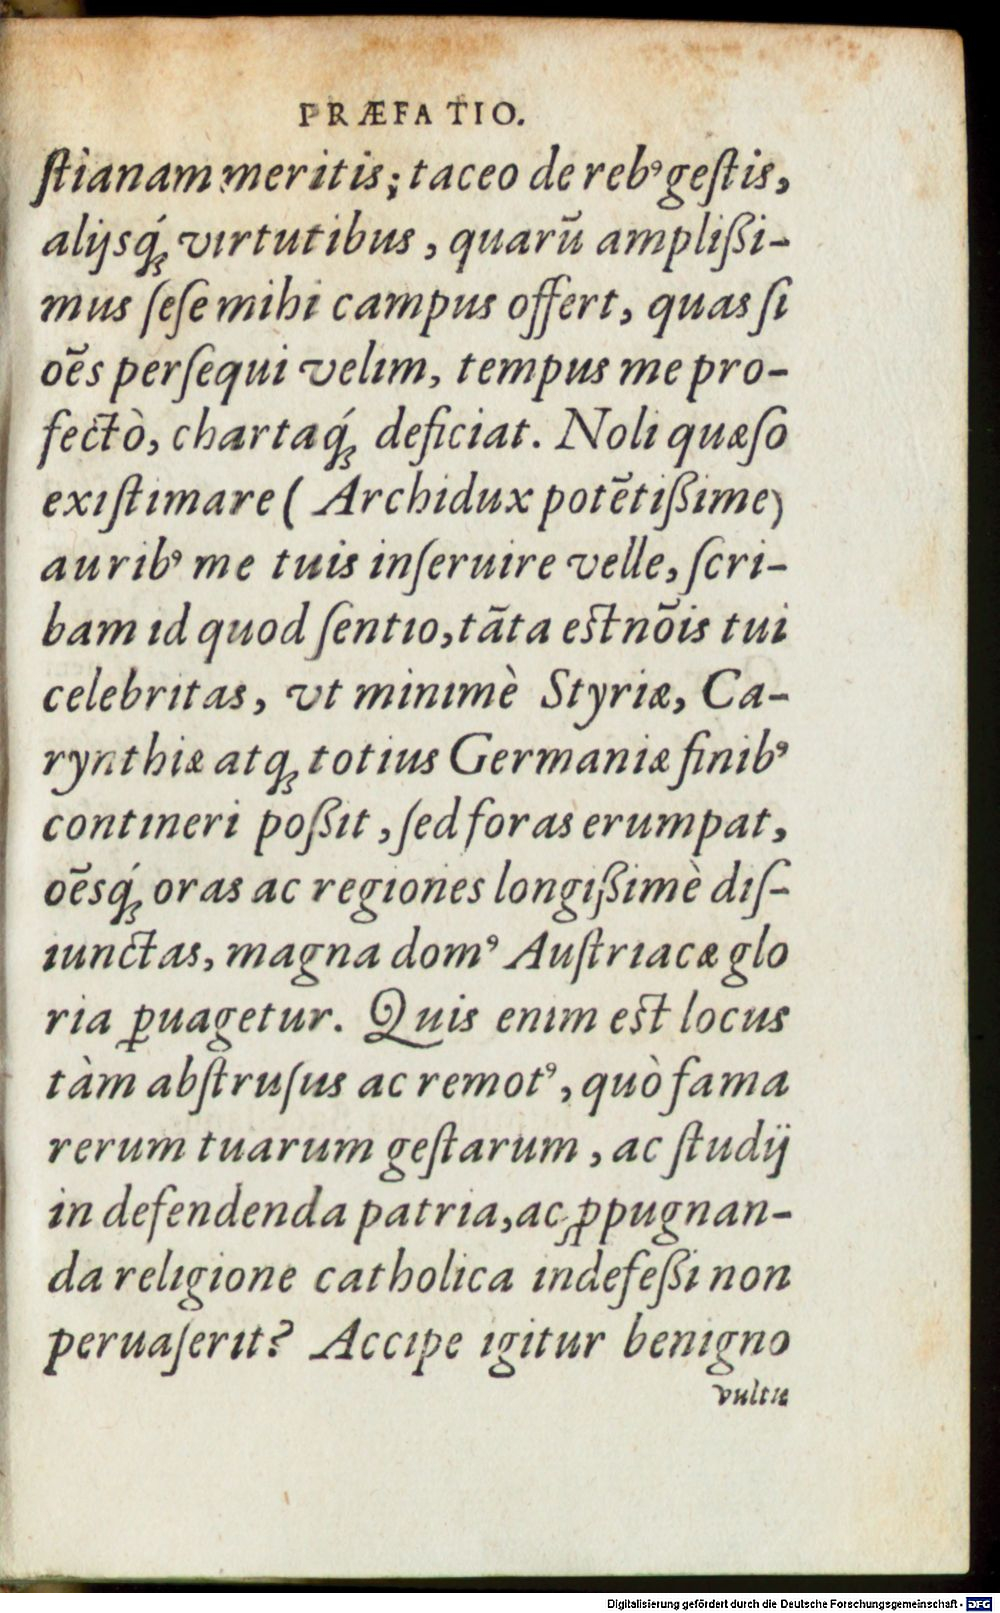 PRÆFATIO.
ſtianam meritis; taceo de rebꝰ geſtis,
alijsq́ꝫ virtutibus, quarū ampliſsi-
mus ſeſe mihi campus offert, quas ſi
oēs perſequi velim, tempus me pro-
fectò, chartaq́ꝫ deficiat. Noli quæſo
exiſtimare (Archidux potētiſsime)
auribꝰ me tuis inſeruire velle, ſcri-
bam id quod ſentio, tāta eſt nōis tui
celebritas, vt minimè Styriæ, Ca-
rynthiæ atqꝫ totius Germaniæ finibꝰ
contineri poſsit, ſed foras erumpat,
oēsq́ꝫ oras ac regiones longiſsimè diſ-
iunctas, magna domꝰ Auſtriacæ glo
ria ꝑuagetur. Quis enim eſt locus
tàm abſtruſus ac remotꝰ, quò fama
rerum tuarum geſtarum, ac ſtudij
in defendenda patria, ac ꝓpugnan-
da religione catholica indefeſsi non
peruaſerit? Accipe igitur benigno
vultu
Digitalisierung gefördert durch die Deutsche Forschungsgemeinschaft - DFG